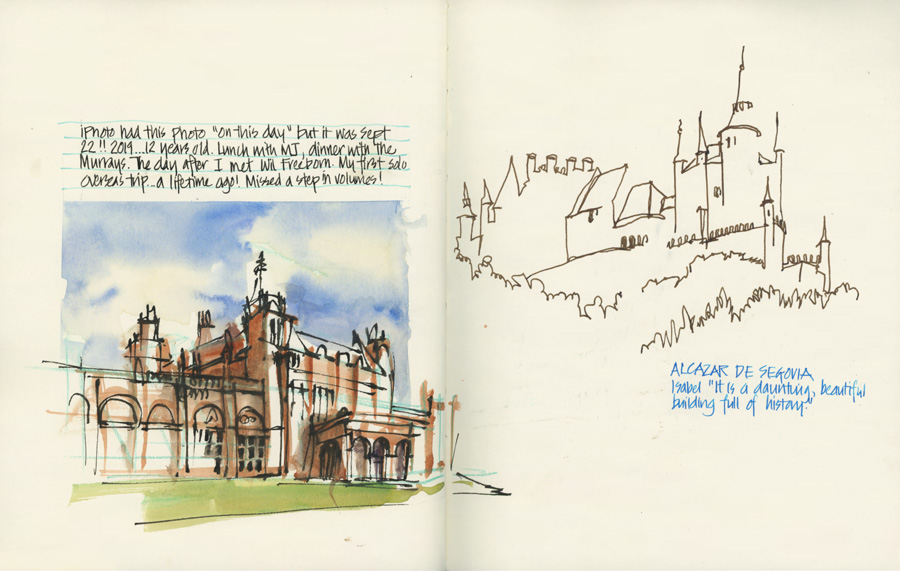 iPhoto had this photo "on this day" but it was Sept
22!! 2019...12 years old. Lunch with MJ, dinner with the
Murrays. The day after I met Wil Freeborn. My first solo
overseas trip...a lifetime ago! Missed a step in volumes!
ALCAZAR DE SEGOVIA
Isabel "It is a daunting, beautiful
building full of history."